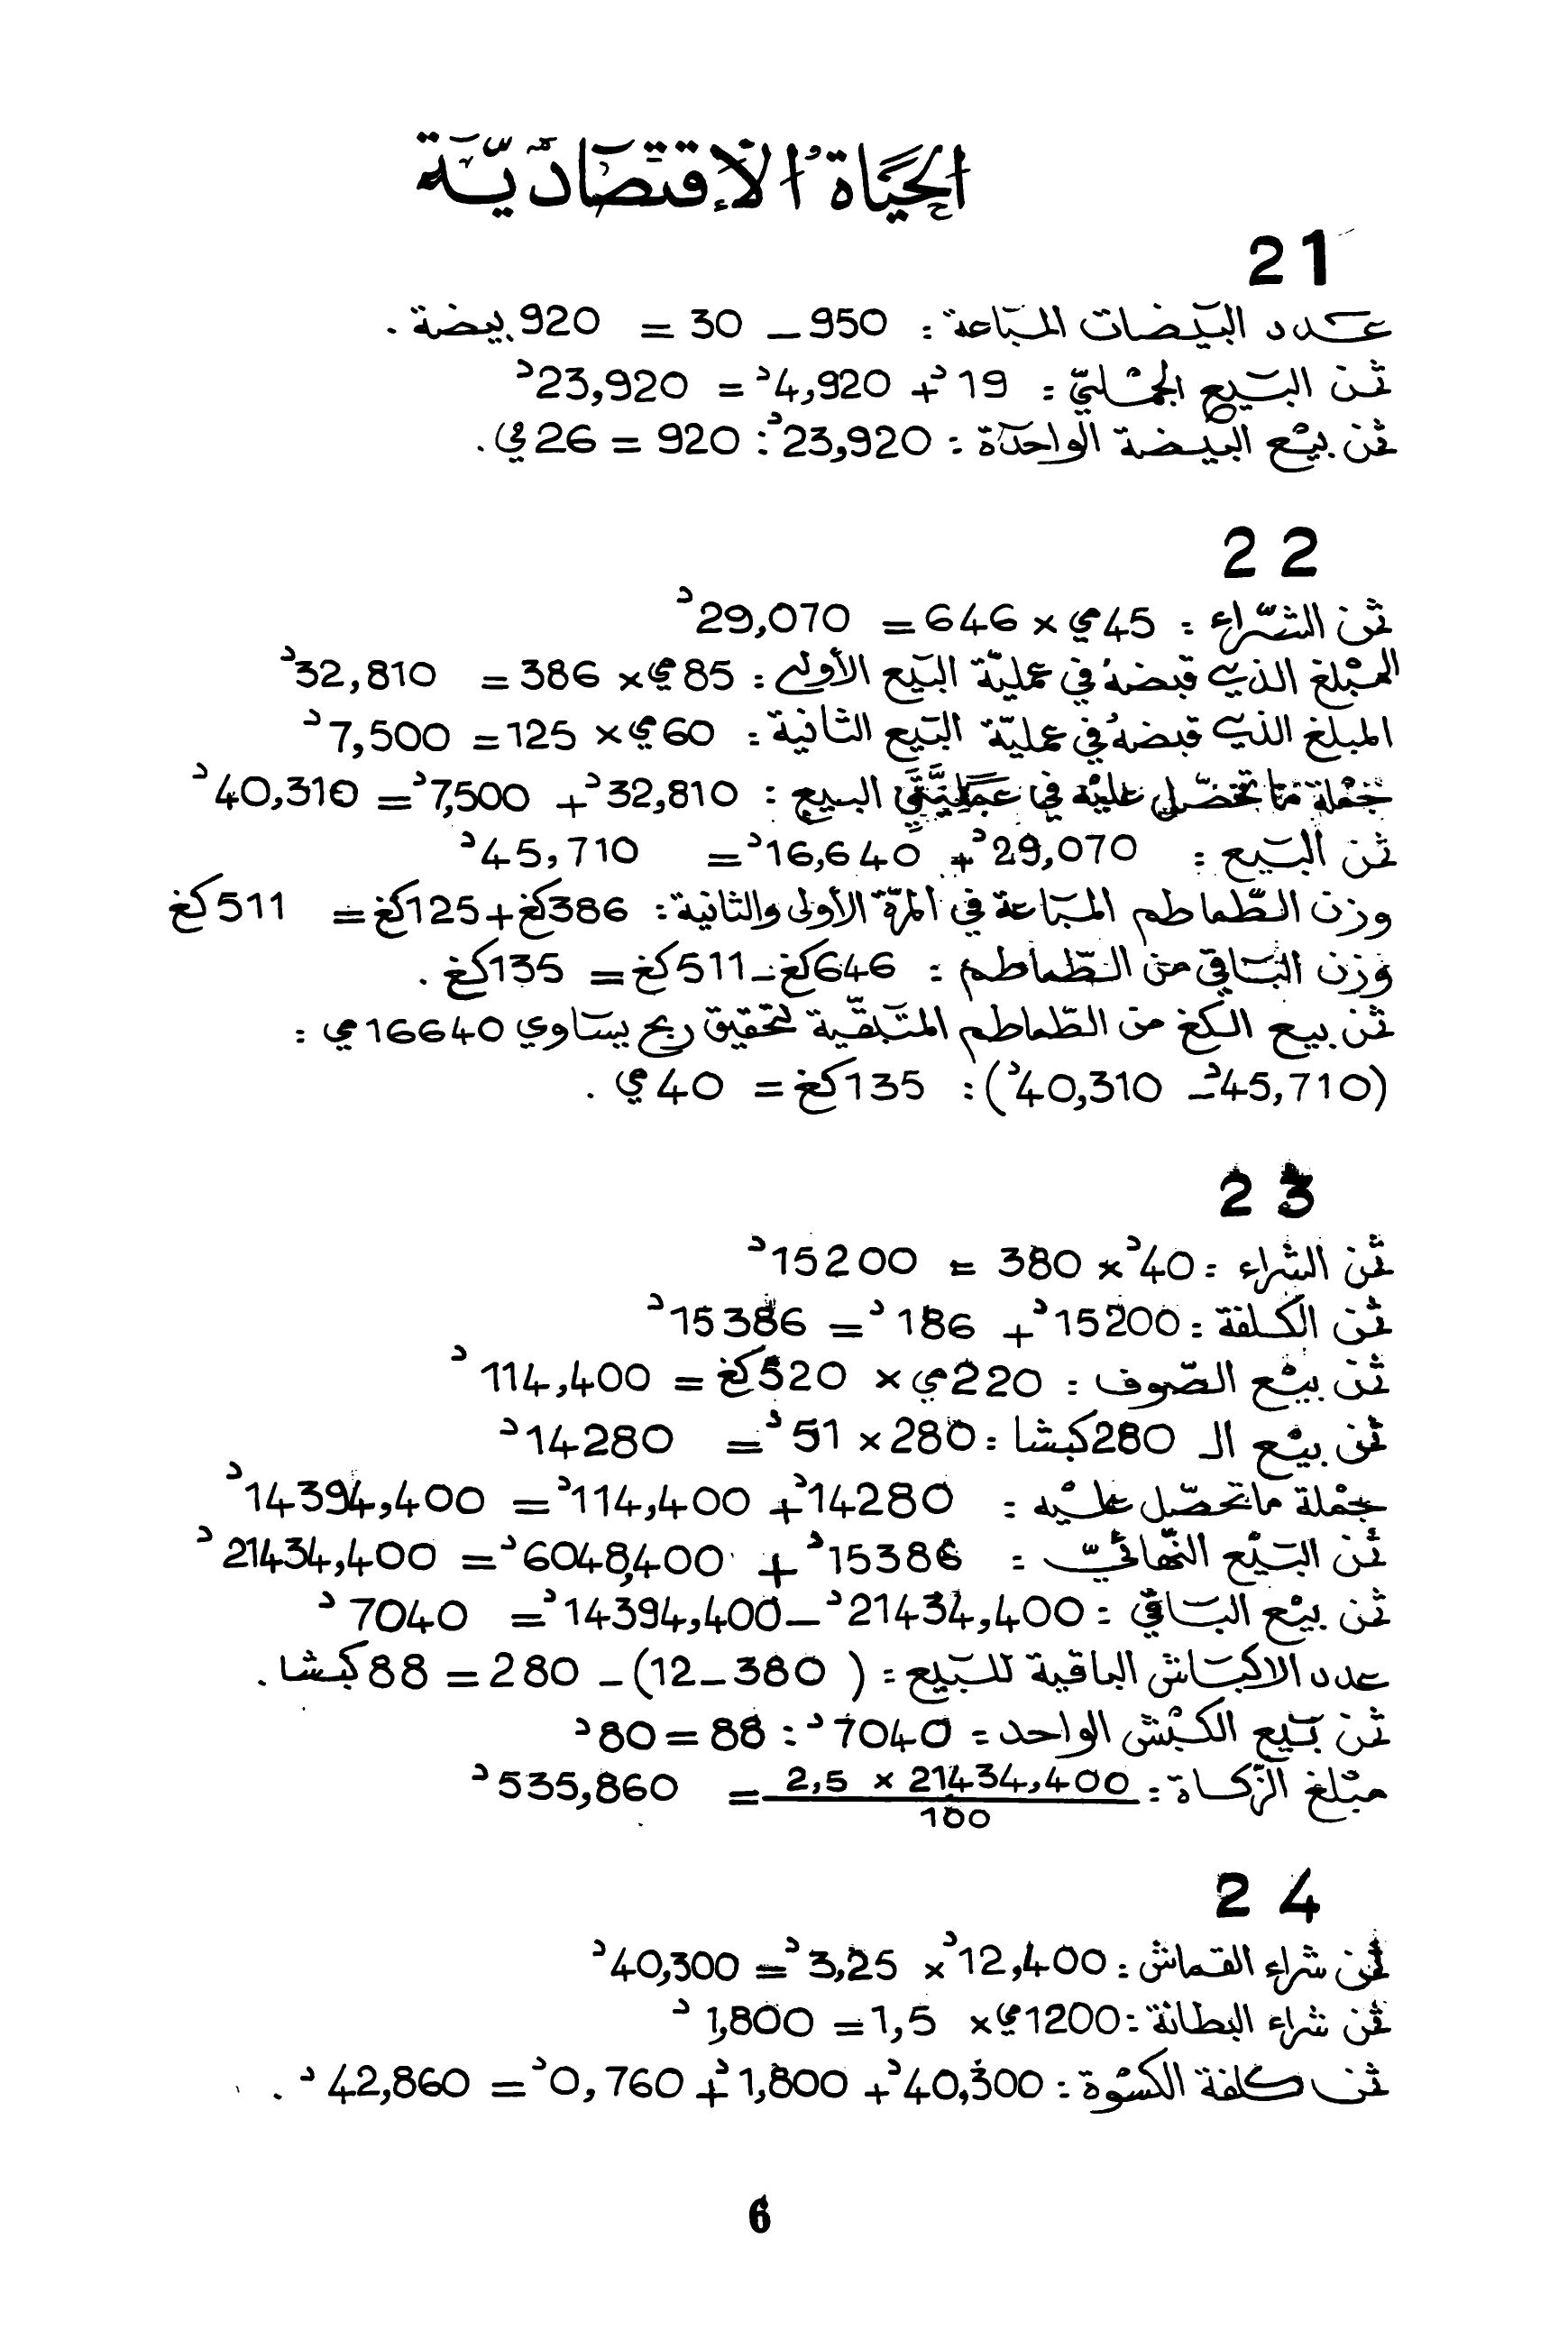 الحَيَاةُ الْإِقْتِصَادِيَّة
21
عدد البيضات المباعة : 950 – 30 = 920 بيضة .
ثمن البيع الجمليّ : 19د + 4,920د = 23,920د
ثمن بيْع البيضة الواحدة : 23,920د : 920 = 26مي .
22
ثمن الشّراء : 45مي × 646 = 29,070د
المبْلغ الذي قبضهُ في عمليّة البيع الأولى : 85مي × 386 = 32,810د
المبلغ الذي قبضهُ في عمليّة البيع الثانية : 60مي × 125 = 7,500د
جمْلة ما تحصّل عليْه في عَمَلِيَّتَيْ البيع : 32,810د + 7,500د = 40,310د
ثمن البيع : 29,070د + 16,640د = 45,710د
وزن الطّماطم المباعة في المرّة الأولى والثانية : 386كغ + 125كغ = 511كغ
وزن الباقي من الطّماطم : 646كغ – 511كغ = 135كغ .
ثمن بيع الكغ من الطّماطم المتبقّية لتحقيق ربح يساوي 16640مي :
(45,710د – 40,310د) : 135كغ = 40مي .
23
ثمن الشراء : 40د × 380 = 15200د
ثمن الكلفة : 15200د + 186د = 15386د
ثمن بيْع الصّوف : 220مي × 520كغ = 114,400د
ثمن بيْع الـ 280كبشا : 280 × 51د = 14280د
جمْلة ما تحصّل عليْه : 14280د + 114,400د = 14394,400د
ثمن البيْع النّهائيّ : 15386د + 6048,400د = 21434,400د
ثمن بيْع الباقي : 21434,400د – 14394,400د = 7040د
عدد الاكباش الباقية للبيع : ( 380 – 12) – 280 = 88كبشا .
ثمن بيع الكبْش الواحد : 7040د : 88 = 80د
مبْلغ الزّكاة : 21434,400 × 2,5 / 100 = 535,860د
24
ثمن شراء القماش : 12,400د × 3,25د = 40,300د
ثمن شراء البطانة : 1200مي × 1,5 = 1,800د
ثمن كلفة الكسْوة : 40,300د + 1,800د + 0,760د = 42,860د .
6